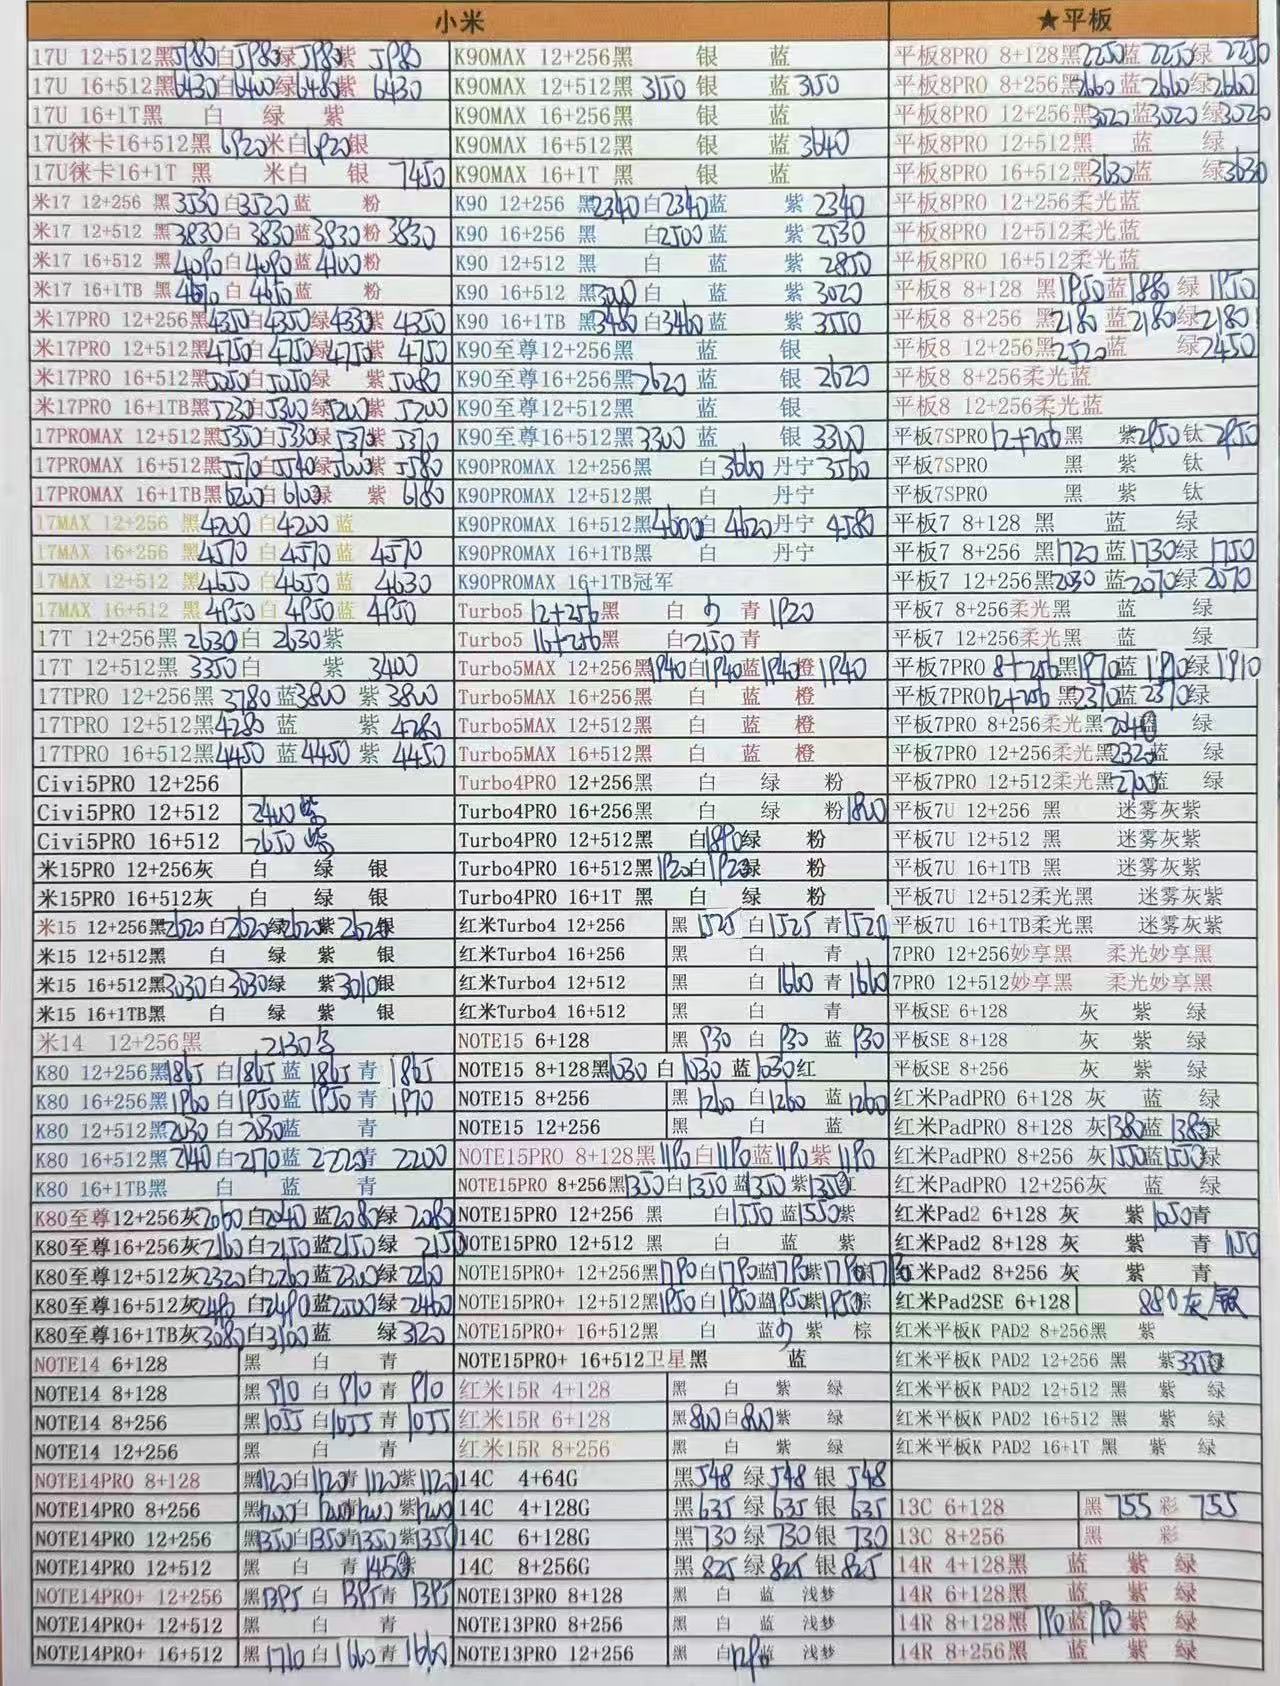 小米
★平板
17U 12+512黑5980白5980绿5980紫 5980
17U 16+512黑6430白6400绿6480紫 6430
17U 16+1T黑 白 绿 紫
17U徕卡16+512黑 6920米白6920银
17U徕卡16+1T 黑 米白 银 7450
米17 12+256 黑3530白3520蓝 粉
米17 12+512 黑3830白 3830蓝3830粉 3830
米17 16+512 黑4090白4090蓝4100粉
米17 16+1TB黑 白 蓝 粉
米17PRO 12+256黑4350白4350绿4330紫 4350
米17PRO 12+512黑4750白4750绿4750紫 4750
米17PRO 16+512黑5050白5050绿 紫5080
米17PRO 16+1TB黑5230白5300绿5200紫 5200
17PROMAX 12+512黑5350白5330绿5370紫 5370
17PROMAX 16+512黑5570白5540绿5600紫 5580
17PROMAX 16+1TB黑6200白6100绿 紫 6180
17MAX 12+256 黑4200白4200蓝
17MAX 16+256 黑4570 白4570蓝 4570
17MAX 12+512 黑4650白4650蓝 4630
17MAX 16+512 黑 4950白4950蓝 4950
17T 12+256黑 2630白 2630紫
17T 12+512黑 3350白 紫 3400
17TPRO 12+256黑 3780 蓝3800 紫 3800
17TPRO 12+512黑4280蓝 紫 4280
17TPRO 16+512黑4450 蓝4450 紫 4450
Civi5PRO 12+256
Civi5PRO 12+512 2400 紫
Civi5PRO 16+512 2650 紫
米15PRO 12+256灰 白 绿 银
米15PRO 16+512灰 白 绿 银
米15 12+256黑2620白2620绿2620紫 2620银
米15 12+512黑 白 绿 紫 银
米15 16+512黑3030白3030绿 紫3010银
米15 16+1TB黑 白 绿 紫 银
米14 12+256黑 2130
K80 12+256黑1865 白1865蓝 1865青 1865
K80 16+256黑1960 白1950蓝 1950青 1970
K80 12+512黑2030 白2030蓝 青
K80 16+512黑2140白2170蓝 2220青 2200
K80 16+1TB黑 白 蓝 青
K80至尊12+256灰2060 白2040 蓝2080绿 2080
K80至尊16+256灰2160白2150蓝2150绿 2150
K80至尊12+512灰2320白2260蓝2300绿2260
K80至尊16+512灰2490 白2490蓝2500绿2460
K80至尊16+1TB灰3080白3100蓝 绿3120
NOTE14 6+128 黑 白 青
NOTE14 8+128 黑 910 白 910 青 910
NOTE14 8+256 黑1055白1055青 1055
NOTE14 12+256 黑 白 青
NOTE14PRO 8+128 黑1120白1120青 1120紫1120
NOTE14PRO 8+256 黑1200白 1200青1200紫1200
NOTE14PRO 12+256 黑1350白1350青1350紫1350
NOTE14PRO 12+512 黑 白 青1450紫
NOTE14PRO+ 12+256 黑1395白 1395青 1395
NOTE14PRO+ 12+512 黑 白 青
NOTE14PRO+ 16+512 黑 1710白 1660青 1660
K90MAX 12+256黑 银 蓝
K90MAX 12+512黑 3150 银 蓝3150
K90MAX 16+256黑 银 蓝
K90MAX 16+512黑 银 蓝 3640
K90MAX 16+1T 黑 银 蓝
K90 12+256 黑2340白2340蓝 紫 2340
K90 16+256 黑 白2500蓝 紫 2530
K90 12+512 黑 白 蓝 紫 2850
K90 16+512 黑3000白 蓝 紫 3020
K90 16+1TB 黑3480白3460蓝 紫 3550
K90至尊12+256黑 蓝 银
K90至尊16+256黑2620 蓝 银 2620
K90至尊12+512黑 蓝 银
K90至尊16+512黑3300 蓝 银 3300
K90PROMAX 12+256黑 白3660丹宁3560
K90PROMAX 12+512黑 白 丹宁
K90PROMAX 16+512黑4600白 4620丹宁 4580
K90PROMAX 16+1TB黑 白 丹宁
K90PROMAX 16+1TB冠军
Turbo5 12+256黑 白 青 1920
Turbo5 16+256黑 白2150青
Turbo5MAX 12+256黑1940白1940蓝1940橙 1940
Turbo5MAX 16+256黑 白 蓝 橙
Turbo5MAX 12+512黑 白 蓝 橙
Turbo5MAX 16+512黑 白 蓝 橙
Turbo4PRO 12+256黑 白 绿 粉
Turbo4PRO 16+256黑 白 绿 粉1800
Turbo4PRO 12+512黑 白1890绿 粉
Turbo4PRO 16+512黑1920白1920绿 粉
Turbo4PRO 16+1T 黑 白 绿 粉
红米Turbo4 12+256 黑 1525 白1525 青1520
红米Turbo4 16+256 黑 白 青
红米Turbo4 12+512 黑 白 1660青1660
红米Turbo4 16+512 黑 白 青
NOTE15 6+128 黑 930 白 930 蓝 930
NOTE15 8+128黑1030 白 1030 蓝1030红
NOTE15 8+256 黑 1260 白1260 蓝1260
NOTE15 12+256 黑 白 蓝
NOTE15PRO 8+128黑1190白1190蓝1190紫 1190
NOTE15PRO 8+256黑1350白1350 蓝1350 紫1350红
NOTE15PRO 12+256 黑 白1550蓝1550紫
NOTE15PRO 12+512 黑 白 蓝 紫
NOTE15PRO+ 12+256黑1790白1790蓝1790紫1790棕
NOTE15PRO+ 12+512黑1950白1950蓝1950紫1950棕
NOTE15PRO+ 16+512黑 白 蓝 紫 棕
NOTE15PRO+ 16+512卫星黑 蓝
红米15R 4+128 黑 白 紫 绿
红米15R 6+128 黑800白800紫 绿
红米15R 8+256 黑 白 紫 绿
14C 4+64G 黑548 绿548银 548
14C 4+128G 黑635 绿635银 635
14C 6+128G 黑730 绿730银 730
14C 8+256G 黑825 绿825银825
NOTE13PRO 8+128 黑 白 蓝 浅梦
NOTE13PRO 8+256 黑 白 蓝 浅梦
NOTE13PRO 12+256 黑 白 蓝 浅梦
平板8PRO 8+128黑2250蓝 2250绿 2250
平板8PRO 8+256黑2660蓝 2660绿2660
平板8PRO 12+256黑3020蓝3020绿3020
平板8PRO 12+512黑 蓝 绿
平板8PRO 16+512黑3630蓝 绿3630
平板8PRO 12+256柔光蓝
平板8PRO 12+512柔光蓝
平板8PRO 16+512柔光蓝
平板8 8+128 黑1950蓝1880 绿 1950
平板8 8+256 黑2180 蓝2180绿2180
平板8 12+256黑2520蓝 绿2450
平板8 8+256柔光蓝
平板8 12+256柔光蓝
平板7SPRO12+256黑 紫2950钛 2950
平板7SPRO 黑 紫 钛
平板7SPRO 黑 紫 钛
平板7 8+128 黑 蓝 绿
平板7 8+256 黑1720 蓝1730绿 1750
平板7 12+256黑2030 蓝2070绿 2070
平板7 8+256柔光黑 蓝 绿
平板7 12+256柔光黑 蓝 绿
平板7PRO 8+256黑1970蓝 1910绿1910
平板7PRO12+256黑2370蓝2370绿
平板7PRO 8+256柔光黑2040蓝 绿
平板7PRO 12+256柔光黑2320蓝 绿
平板7PRO 12+512柔光黑2700蓝 绿
平板7U 12+256 黑 迷雾灰紫
平板7U 12+512 黑 迷雾灰紫
平板7U 16+1TB 黑 迷雾灰紫
平板7U 12+512柔光黑 迷雾灰紫
平板7U 16+1TB柔光黑 迷雾灰紫
7PRO 12+256妙享黑 柔光妙享黑
7PRO 12+512妙享黑 柔光妙享黑
平板SE 6+128 灰 紫 绿
平板SE 8+128 灰 紫 绿
平板SE 8+256 灰 紫 绿
红米PadPRO 6+128 灰 蓝 绿
红米PadPRO 8+128 灰1380蓝 1380绿
红米PadPRO 8+256 灰1550蓝1550绿
红米PadPRO 12+256灰 蓝 绿
红米Pad2 6+128 灰 紫 1050青
红米Pad2 8+128 灰 紫 青 1150
红米Pad2 8+256 灰 紫 青
红米Pad2SE 6+128 880灰/银
红米平板K PAD2 8+256黑 紫
红米平板K PAD2 12+256 黑 紫3350
红米平板K PAD2 12+512 黑 紫 绿
红米平板K PAD2 16+512 黑 紫 绿
红米平板K PAD2 16+1T 黑 紫 绿
13C 6+128 黑 755 彩 755
13C 8+256 黑 彩
14R 4+128黑 蓝 紫 绿
14R 6+128黑 蓝 紫 绿
14R 8+128黑 790蓝790紫 绿
14R 8+256黑 蓝 紫 绿